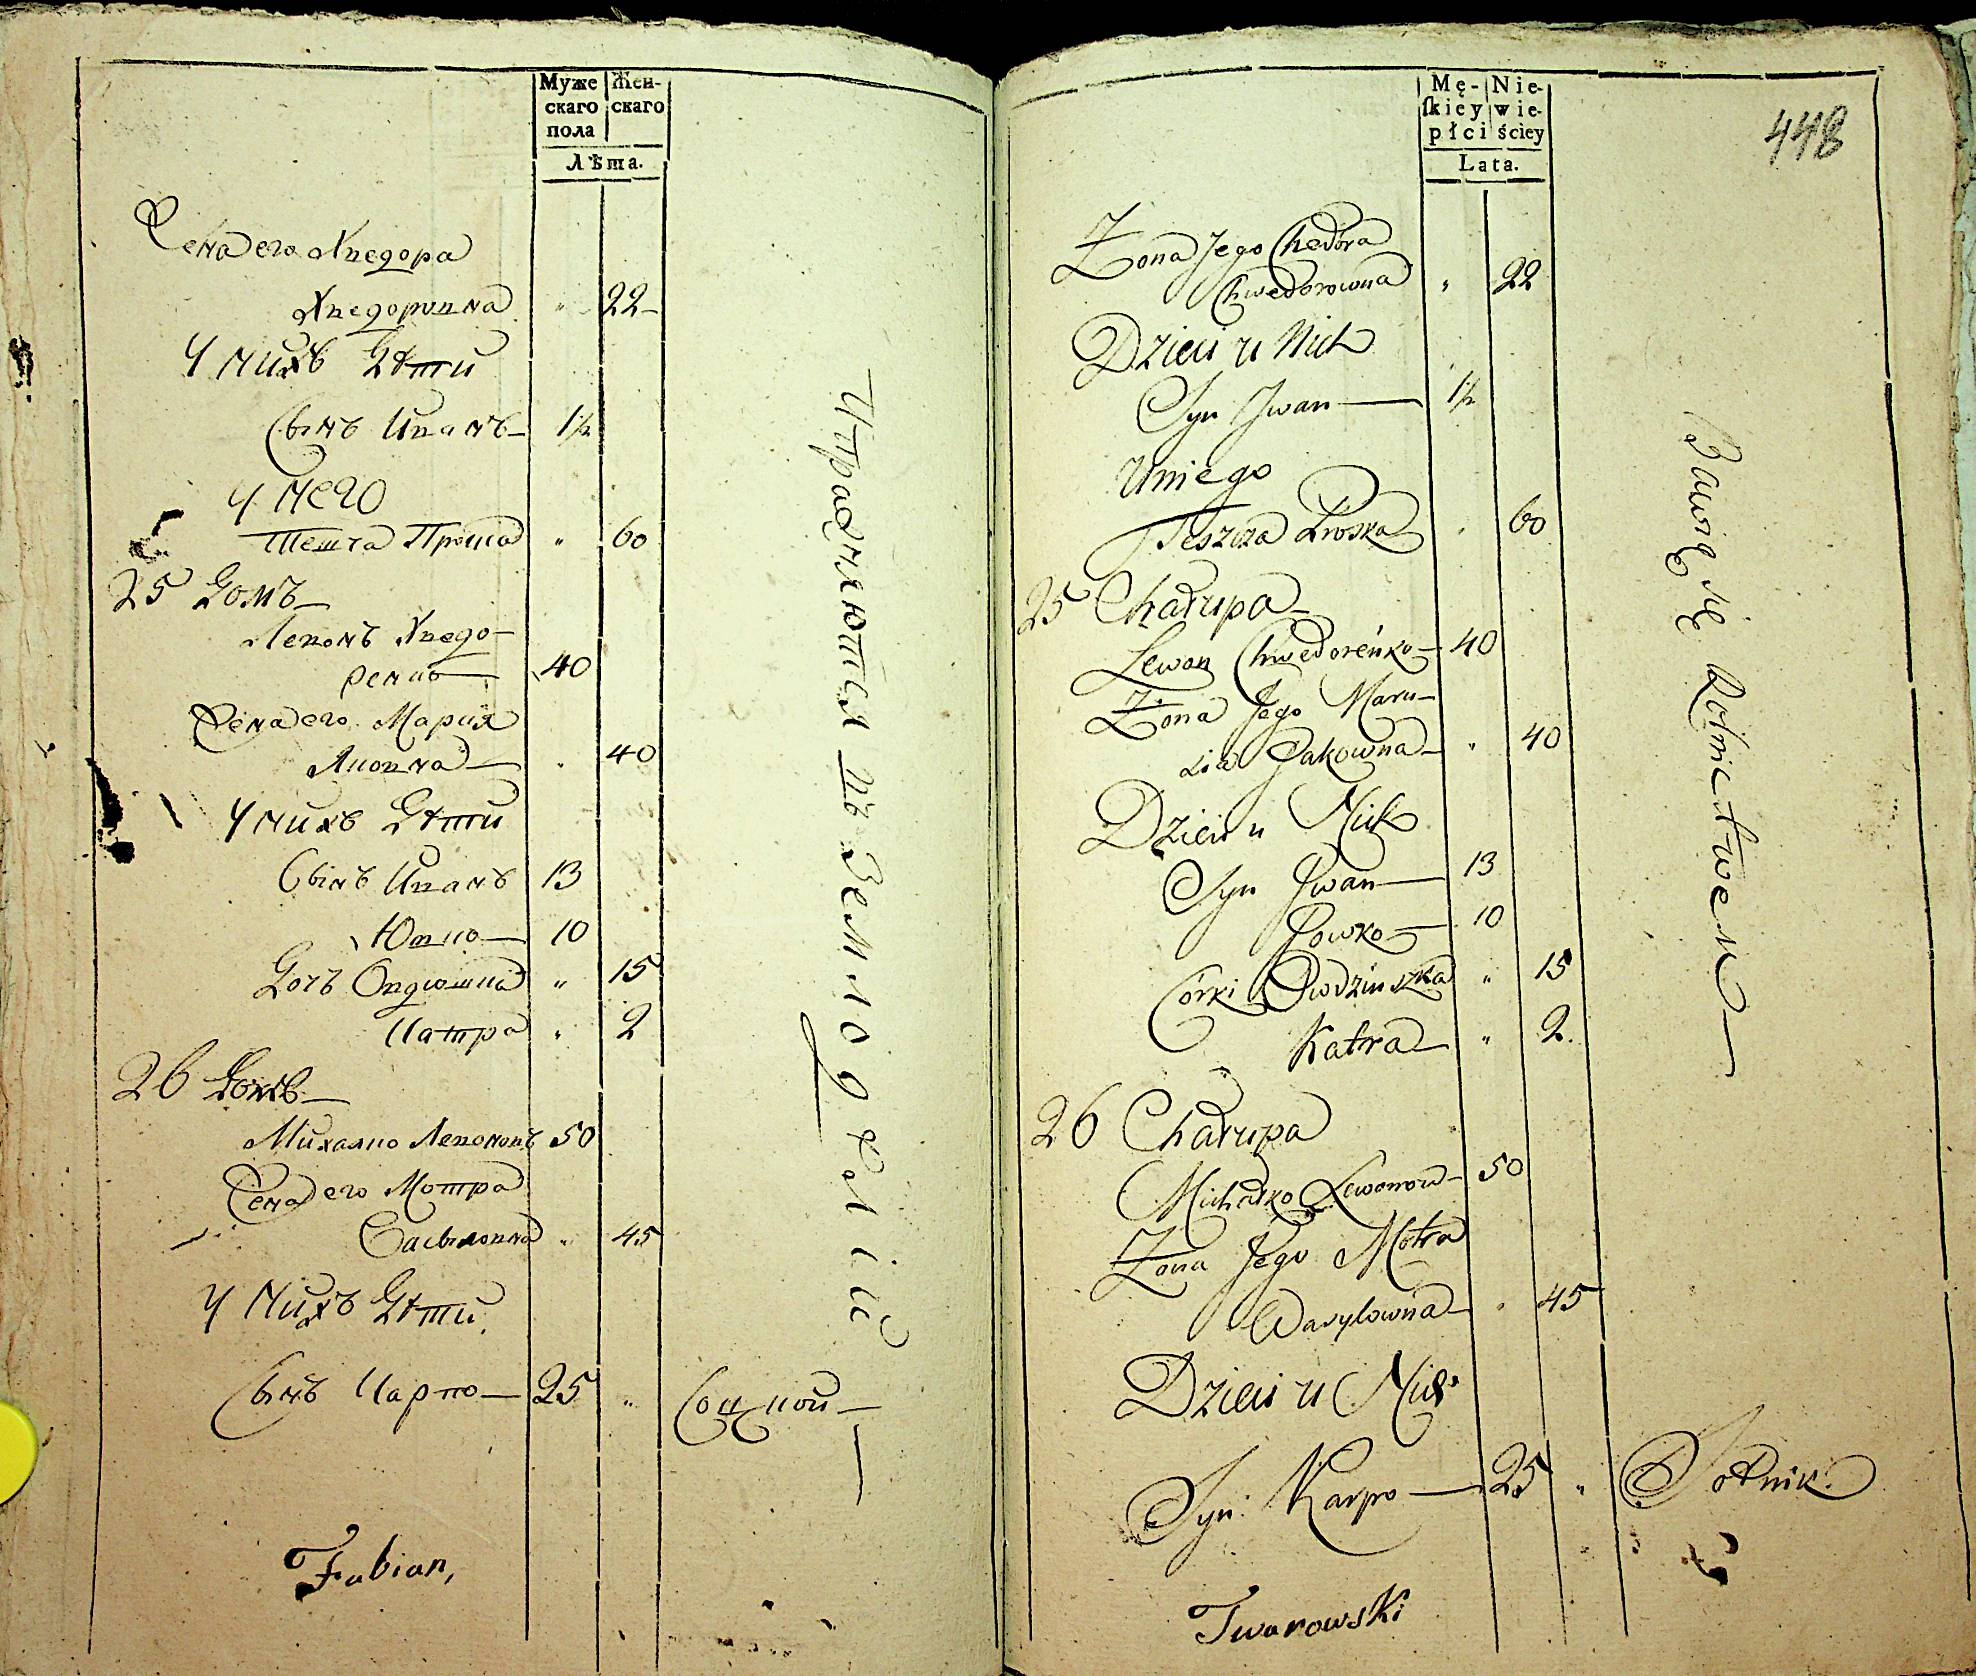 Муже
скаго
пола
Жен-
скаго
Лѣта.
Жена его Хведора
Хведоровна " 22
У нихъ Дѣти
Сынъ Иванъ 1½
У него
Тешча Проска " 60
25 Домъ
Левонъ Хведо-
ренко 40
Жена его Мария
Яковна " 40
У нихъ Дѣти
Сынъ Иванъ 13
Ювко 10
Дочъ Овдюшка " 15
Катра " 2
26 Домъ
Михалко Левоновъ 50
Жена его Мотра
Васылловна " 45
У нихъ Дѣти
Сынъ Карпо 25 " Соцкой
Упражняются въ Земледѣліи
Fabian,
448
Mę-
skiey
płci
Nie-
wie-
ściey
Lata.
Żona Jego Chedora
Chwedorowna " 22
Dzieci u Nich
Syn Jwan 1½
U niego
Teszcza Proska " 60
25 Chałupa
Lewon Chwedoreńko 40
Żona Jego Mary-
sia Jakowna " 40
Dzieci u Nich
Syn Jwan 13
Jowko 10
Córki Owdziuszka " 15
Katra " 2.
26 Chałupa
Michałko Lewonow 50
Żona Jego Motra
Wasylowna " 45
Dzieci u Nich
Syn Karpo 25 " Sotnik.
Bawią się Rolnictwem
Twarowski